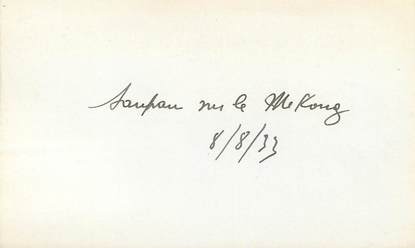 Sampan sur le MeKong
8/8/33